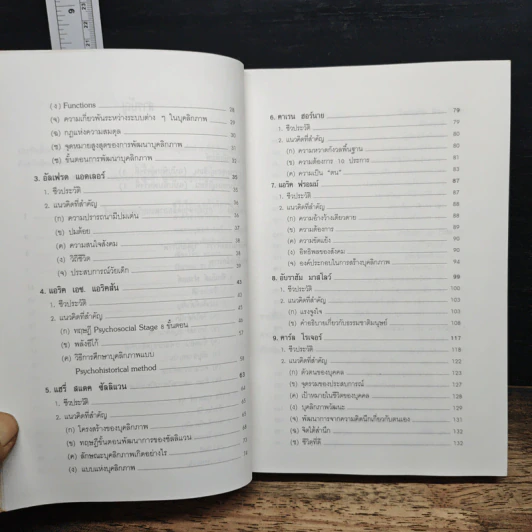 (ง) Functions 28
(จ) ความเกี่ยวพันระหว่างระบบต่าง ๆ ในบุคลิกภาพ 29
(ฉ) กฎแห่งความสมดุล 31
(ช) จุดหมายสูงสุดของการพัฒนาบุคลิกภาพ 31
(ซ) ขั้นตอนการพัฒนาบุคลิกภาพ
3. อัลเฟรด แอดเลอร์ 35
1. ชีวประวัติ
2. แนวคิดที่สำคัญ
(ก) ความปรารถนามีปมเด่น
(ข) ปมด้อย
(ค) ความสนใจสังคม
(ง) วิถีชีวิต
(จ) ประสบการณ์วัยเด็ก
4. แอริค เอช. แอริคสัน
1. ชีวประวัติ
2. แนวคิดที่สำคัญ
(ก) ทฤษฎี Psychosocial Stage 8 ขั้นตอน
(ข) พลังอีโก้
(ค) วิธีการศึกษาบุคลิกภาพแบบ
Psychohistorical method 59
5. แฮรี่ สแตค ซัลลิแวน 63
1. ชีวประวัติ
2. แนวคิดที่สำคัญ
(ก) โครงสร้างของบุคลิกภาพ
(ข) ทฤษฎีขั้นตอนพัฒนาการของซัลลิแวน
(ค) ลักษณะบุคลิกภาพเกิดอย่างไร
(ง) แบบแห่งบุคลิกภาพ
6. คาเรน ฮอร์นาย 79
1. ชีวประวัติ 79
2. แนวคิดที่สำคัญ 80
(ก) ความหวาดกังวลพื้นฐาน 80
(ข) ความต้องการ 10 ประการ 81
(ค) ความเป็น "ตน" 83
7. แอริค ฟรอมม์ 87
1. ชีวประวัติ 87
2. แนวคิดที่สำคัญ 88
(ก) ความอ้างว้างเดียวดาย 88
(ข) ความต้องการ
(ค) ความขัดแย้ง 90
(ง) อิทธิพลของสังคม
(จ) องค์ประกอบในการสร้างบุคลิกภาพ
8. อับราฮัม มาสโลว์ 99
1. ชีวประวัติ 100
2. แนวคิดที่สำคัญ 103
(ก) แรงจูงใจ 103
(ข) คำอธิบายเกี่ยวกับธรรมชาติมนุษย์ 108
9. คาร์ล โรเจอร์ 117
1. ชีวประวัติ 118
2. แนวคิดที่สำคัญ 122
(ก) ตัวตนของบุคคล 123
(ข) จุดรวมของประสบการณ์ 127
(ค) เป้าหมายในชีวิตของบุคคล
(ง) บุคลิกภาพวัฒนะ 129
(จ) พัฒนาการจากความคิดนึกเกี่ยวกับตนเอง 131
(ฉ) จิตใต้สำนึก 132
(ช) ชีวิตที่ดี 132